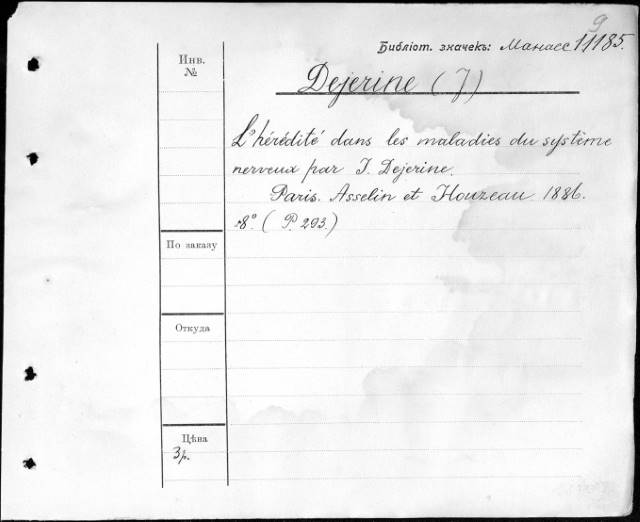 9
Библіот. значекъ: Манасс 11185.
Инв.
№
Dejerine (J)
L'hérédité dans les maladies du système
nerveux par J. Dejerine.
Paris. Asselin et Houzeau. 1886.
8º. (P. 293.)
По заказу
Откуда
Цѣна
3р.